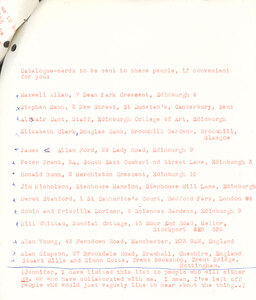 Catalogue-cards to be sent to these people, if convenient
for you:
Maxwell Allan, 7 Dean Park Crescent, Edinburgh 4
Stephen Bann, 2 New Street, St Dunstan's, Canterbury, Kent
Staff, Edinburgh College of Art, Edinburgh
Elizabeth Clark, Douglas Bank, Broomhill Gardens, Broomhill,
Glasgow
James Allan Ford, 29 Lady Road, Edinburgh 9
Peter Grant, South East Cumberland Street Lane, Edinburgh 3
Ronald Gunn, 2 Merchiston Crescent, Edinburgh 10
Jim Nicholson, Stenhouse Mansion, Stenhouse Mill Lane, Edinburgh
Derek Stanford, 1 St Catharine's Court, Bedford Park, London W4
Robin and Priscilla 8 Sciences Gardens, Edinburgh 9
Bill Cottage, 15 Moor End Road, Mellor,
Stockport
Alan Young, 43 Ferndown Road, Manchester, M23 9AW, England
Alan Simpson, 27 Brookdale Road, Bramhall, Cheshire, England
Stuart Mills and Simon Cutts, Trent Bookshop, Trent Bridge,
Nottingham.
I have limited this list to people who will either
or who have collaborated with me. I mean, I've left off
people who would just vaguely like to hear about the thing..)